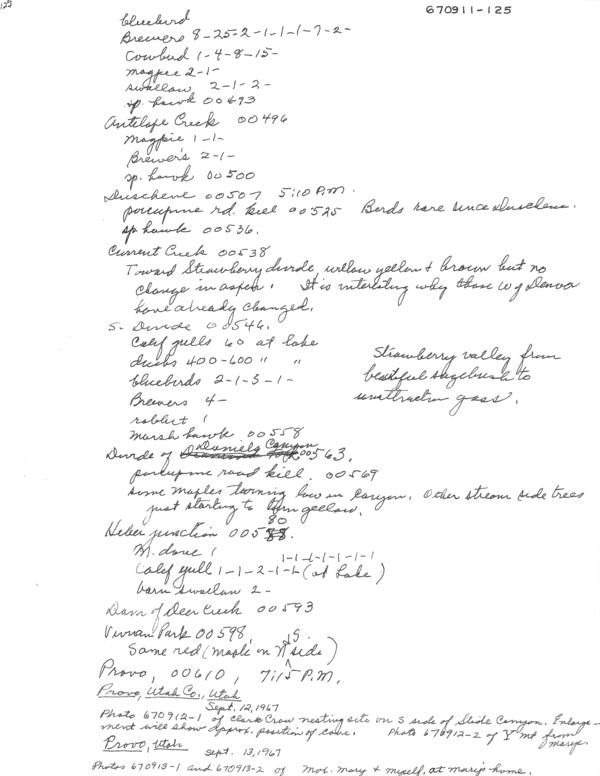 125
670911-125
bluebird
Brewers 8-25-2-1-1-1-7-2-
Cowbird 1-4-8-15-
magpie 2-1-
swallow 2-1-2-
sp. hawk 00493
Antelope Creek 00496
Magpie 1-1-
Brewer's 2-1-
sp. hawk 00500
Duschene 00507 5:10 P.M.
porcupine rd. kill 00525 Birds rare since Duschene.
sp hawk 00536.
Current Creek 00538
Toward Strawberry divide, willow yellow & brown but no
change in aspen. It is interesting why those W of Denver
have already changed.
S. Divide 00546.
Calif gulls 60 at lake
ducks 400-600 " "
bluebirds 2-1-3-1-
Brewers 4-
rabbit 1
Marsh hawk 00558
Strawberry valley from
beautiful sagebush to
grass.
Divide of Daniels Canyon 00563.
porcupine road kill. 00569
some maples turning low in Canyon. Other stream side trees
just starting to turn yellow.
Heber junction 00580
M. dove 1
1-1-1-1-1-1-1
Calif gull 1-1-2-1-1- (at Lake)
barn swallow 2-
Dam of Deer Creek 00593
Vivian Park 00598,
Some red (maple on N side)
S.
Provo, 00610, 7:15 P.M.
Provo, Utah Co., Utah
Sept. 12, 1967
Photo 670912-1 of Clark Crow nesting site on S side of Slide Canyon. Enlarge-
ment will show approx. position of cave. Photo 670912-2 of Y Mt from
Marip.
Provo, Utah
Sept. 13, 1967
Photos 670913-1 and 670913-2 of Mary & myself, at marip home.